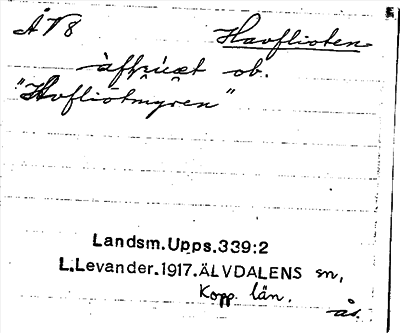 ÅV8 Havflioten
ob.
"Hofliotmyren"
Landsm.Upps.339:2
L.Levander.1917.ÄLVDALENS sn,
Kopp. län.
ås.